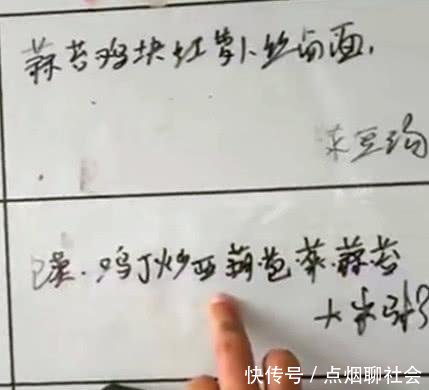 蒜苔鸡块红萝卜丝卤面.
菜豆汤
鸡丁炒西葫芭菜.蒜苔
大米
快传号/点烟聊社会